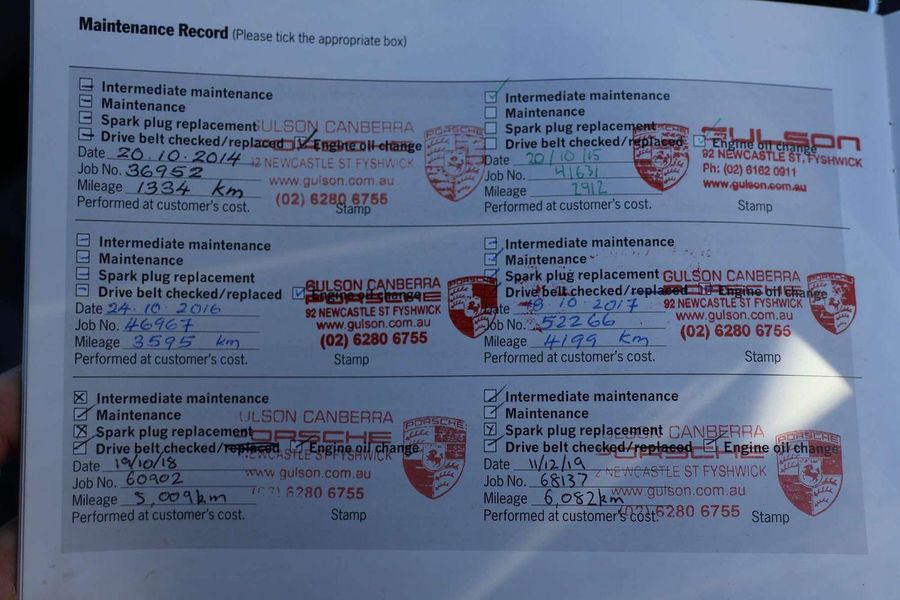 Maintenance Record (Please tick the appropriate box)
Intermediate maintenance
Maintenance
Spark plug replacement
Drive belt checked/replaced Engine oil change
Date 20.10.2014
Job No. 36952
Mileage 1334 km
Performed at customer's cost. Stamp
GULSON CANBERRA
PORSCHE
NEWCASTLE ST, FYSHWICK
www.gulson.com.au
(02) 6280 6755
Intermediate maintenance
Maintenance
Spark plug replacement
Drive belt checked/replaced Engine oil change
Date 20/10/15
Job No. 41631
Mileage 2912
Performed at customer's cost. Stamp
PORSCHE
GULSON
92 NEWCASTLE ST, FYSHWICK
Ph: (02) 6162 0911
www.gulson.com.au
Intermediate maintenance
Maintenance
Spark plug replacement
Drive belt checked/replaced Engine oil change
Date 24.10.2016
Job No. 46967
Mileage 3595 km
Performed at customer's cost. Stamp
GULSON CANBERRA
92 NEWCASTLE ST FYSHWICK
www.gulson.com.au
(02) 6280 6755
Intermediate maintenance
Maintenance
Spark plug replacement
Drive belt checked/replaced Engine oil change
Date 18.10.2017
Job No. 52266
Mileage 4199 km
Performed at customer's cost. Stamp
GULSON CANBERRA
92 NEWCASTLE ST FYSHWICK
www.gulson.com.au
(02) 6280 6755
Intermediate maintenance
Maintenance
Spark plug replacement
Drive belt checked/replaced Engine oil change
Date 19/10/18
Job No. 60902
Mileage 5,009km
Performed at customer's cost. Stamp
ULSON CANBERRA
PORSCHE
NEWCASTLE ST FYSHWICK
www.gulson.com.au
6280 6755
Intermediate maintenance
Maintenance
Spark plug replacement
Drive belt checked/replaced Engine oil change
Date 11/12/19
Job No. 68137
Mileage 6,082km
Performed at customer's cost. Stamp
CANBERRA
2 NEWCASTLE ST FYSHWICK
www.gulson.com.au
(02) 6280 6755
PORSCHE